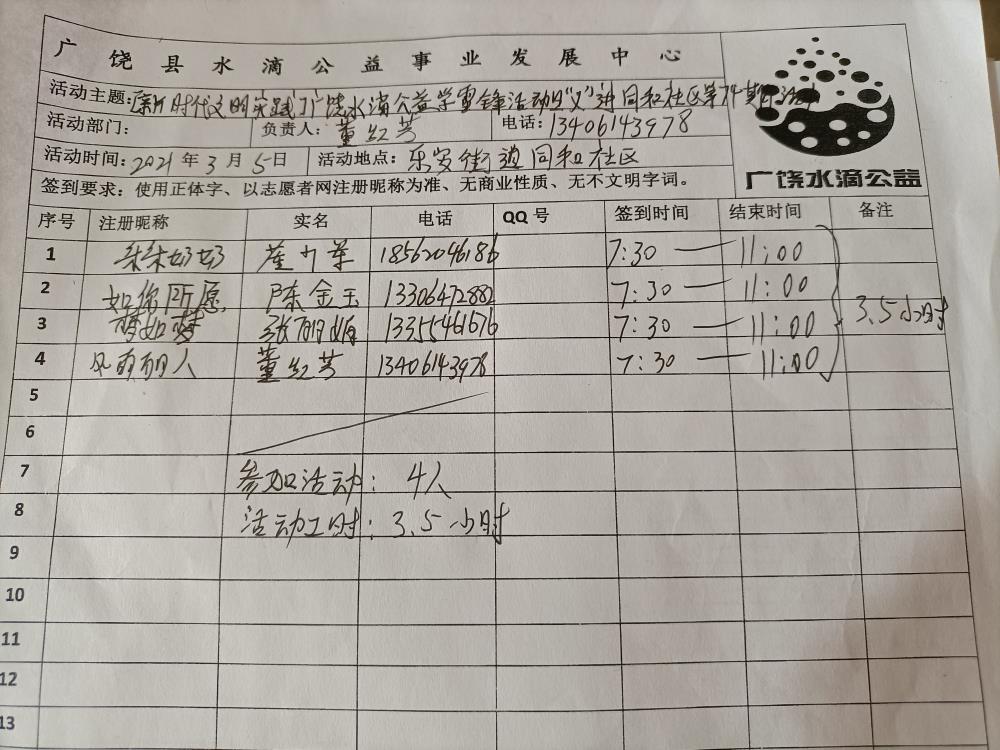 广饶县水滴公益事业发展中心
活动主题:新时代文明实践广饶水滴公益学雷锋活动"义"进同和社区第74期活动
活动部门: 负责人: 董红芳 电话: 13406143978
活动时间: 2021年3月5日 活动地点: 乐安街道同和社区
广饶水滴公益
签到要求: 使用正体字、以志愿者网注册昵称为准、无商业性质、无不文明字词。
序号 注册昵称 实名 电话 QQ号 签到时间 结束时间 备注
1 朵朵奶奶 18562046186 7:30 — 11:00
2 如你所愿 陈金玉 13306472882 7:30 — 11:00
3 梦如梦 张丽娟 13355461676 7:30 — 11:00 3.5小时
4 丽人 董红芳 13406143978 7:30 — 11:00
5
6
7 参加活动: 4人
8 活动工时: 3.5小时
9
10
11
12
13